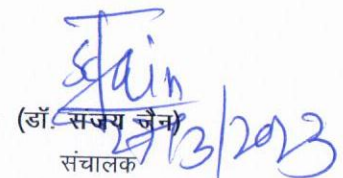 SJain
(डॉ. संजय जैन)
27/3/2023
संचालक